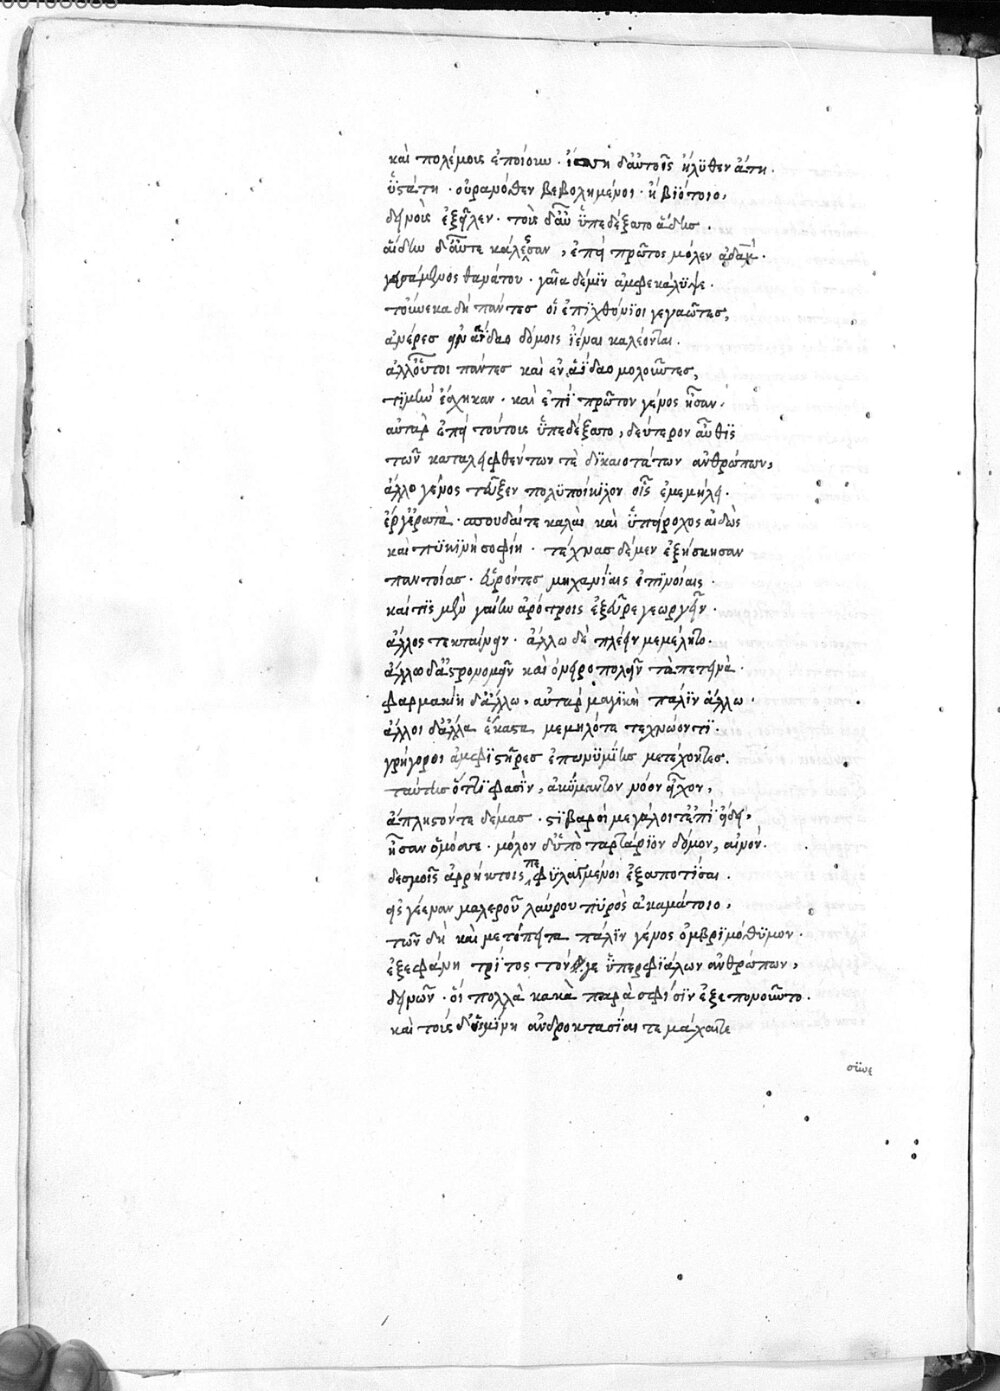 καὶ πολέμοις ἐποίουν · ἐ δ' αὐτοῖς ἤλυθεν ἄτη ·
ὑστάτη · οὐρανόθεν βεβολημένοι · ἢ βιότοιο,
δηνοῖς ἐξῆλεν · τοῖς δ' αὖ ὑπεδέξατο ἅδης ·
ἅϊδην δ' αὖτε κάλεσσαν, ἐπεὶ πρῶτος μόλεν ἀδαμ ·
γευσάμενος θανάτου · γαῖα δέ μιν ἀμφεκάλυψε ·
τοὔνεκα δὴ πάντες οἱ ἐπιχθόνιοι γεγαῶτες,
ἀνέρες εἰν ἀΐδαο δόμοις ἰέναι καλέονται ·
ἀλλ' οὗτοι πάντες καὶ ἐν ἀΐδαο μολοῦντες,
τιμὴν ἔσχηκαν · καὶ ἐπεὶ πρῶτον γένος ἦσαν ·
αὐτὰρ ἐπεὶ τούτοις ὑπεδέξατο, δεύτερον αὖθις
τῶν καταλειφθέντων τὲ δικαιοτάτων ἀνθρώπων,
ἄλλο γένος τεῦξεν πολυποίκιλον οἷς ἐμεμήλει ·
ἔργ' ἐρατὰ · σπουδαί τε καλαὶ καὶ ὑπείροχος αἰδὼς
καὶ πυκινὴ σοφίη · τέχνας δέ μεν ἐξήσκησαν
παντοίας · εὑρόντες μηχανίαις ἐπινοίαις ·
καί τις μὲν γαίην ἀρότροις ἐξεῦρε γεωργεῖν ·
ἄλλος τεκταίνειν · ἄλλω δὲ πλέειν μεμέλητο ·
ἄλλω δ' ἀστρονομεῖν καὶ ὀνειροπολεῖν τὰ πετεηνὰ ·
φαρμακίη δ' ἄλλω · αὐτὰρ μαγικὴ πάλιν ἄλλω ·
ἄλλοι δ' ἄλλα ἕκαστα μεμηλότα τεχνώοντι ·
γρήγοροι ἀμφιστῆρες ἐπωνυμίης μετέχοντες ·
ταύτης ὅττι φασὶν, ἀκύμαντον νόον εἶχον,
ἄπληστόν τε δέμας · στιβαροὶ μεγάλοι τ' ἐπὶ εἴδει,
ἦσαν ὅμοσνε · μόλον δ' ὑπὸ ταρτάριον δόμον, αἰνόν ·
δεσμοῖς ἀρρήκτοις πεφυλαγμένοι ἐξαποτῖσαι ·
εἰς γέενναν μαλεροῦ λαύρου πυρὸς ἀκαμάτοιο,
τῶν δὴ καὶ μετόπεισθε πάλιν γένος ὀμβριμόθυμον ·
ἐξεφάνη τρίτος τόν γε ὑπερφιάλων ἀνθρώπων,
δεινῶν · οἳ πολλὰ κακὰ παρὰ σφίσιν ἐξεπονοῦντο ·
καὶ τοὺς δ' ὑσμίνη ἀνδροκτασίαι τε μάχαι τε
συνε